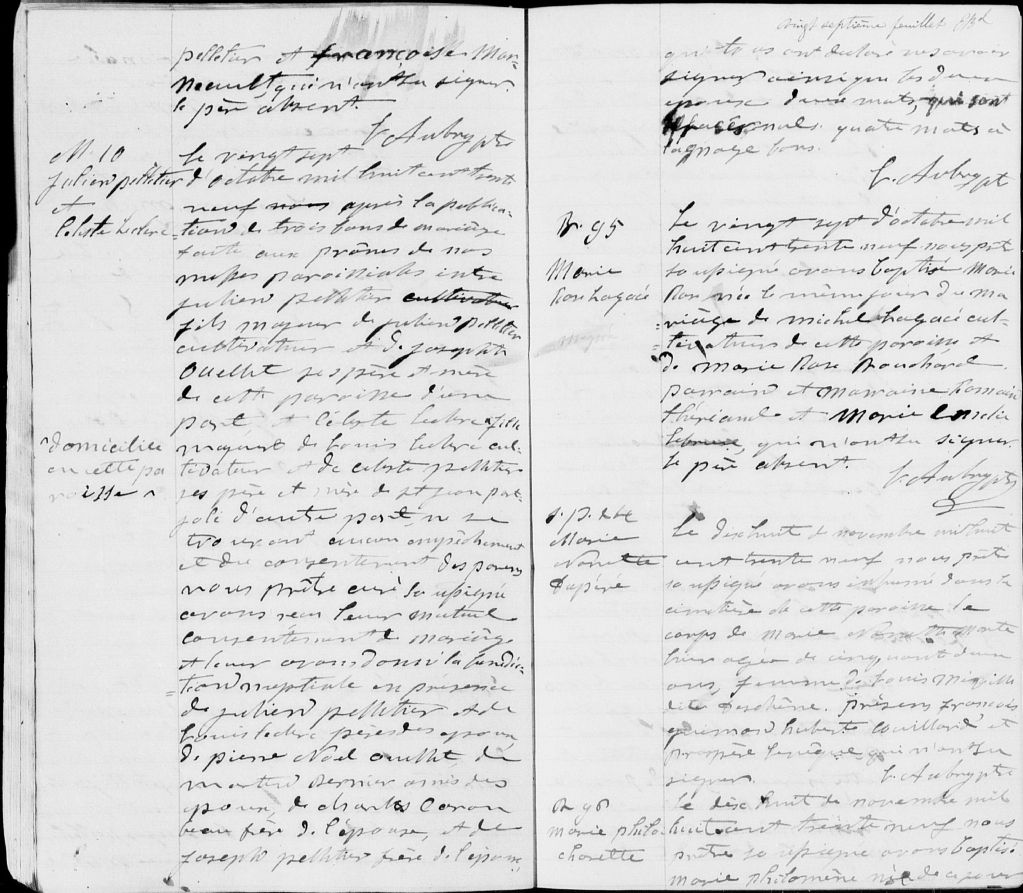 pelletier et françoise Mar-
neault qui n'ont su signer
le père absent.
F. Aubry ptre
M. 10
Julien pelletier
et
Celeste Leclerc
Le vingt sept
d'octobre mil huit cent trente
neuf nous après la publica-
=tion de trois bans de mariage
faite aux prônes de nos
messes paroissiales entre
julien pelletier cultivateur
fils majeur de julien pelletier
cultivateur et de josephte
Ouellet ses père et mère
de cette paroisse d'une
part, et Céleste Leclerc ^ fille
^ domiciliée
en cette pa
roisse ^
majeure de Louis Leclerc cul-
tivateur et de celeste pelletier
ses père et mère de st jean port
joli d'autre part, ne se
trouvant aucun empêchement
et du consentement des parens
nous prêtre curé soussigné
avons reçu leur mutuel
consentement de mariage
et leur avons donné la bénédic-
=tion nuptiale en présence
de julien pelletier et de
Louis leclerc pères des époux
de pierre Noël ouellet de
dernier amis des
époux, de charles Caron
beau frère de l'épouse, et de
joseph pelletier frère de l'époux
vingt septième feuillet
qui tous ont déclaré ne savoir
signer ainsi que les deux
époux deux mots, qui sont
nuls. quatre mots à
la page bons.
F. Aubry pt
B. 95
Marie
Rose Lagacé
Le vingt sept d'octobre mil
huit cent trente neuf nous prêt
soussigné avons baptisé Marie
Rose née le même jour du ma
=riage de michel Lagacé cul-
=tivateur de cette paroisse et
de Marie Rose Bouchard
parrain et marraine Romain
thériault et Marie
qui n'ont su signer
le père absent.
F. Aubry ptre
Marie
Le dix huit de novembre mil huit
cent trente neuf nous prêtre
soussigné avons inhumé dans le
cimetière de cette paroisse le
corps de Marie
agée de cinquante deux
ans, femme de Louis Miville
dit Deschêne. présens françois
hubert couillard et
prospère qui n'ont su
signer. F. Aubry ptre
B. 96
marie philo
charette
Le dix huit de novembre mil
huit cent trente neuf nous
prêtre soussigné avons baptisé
marie philomène née de ce jour